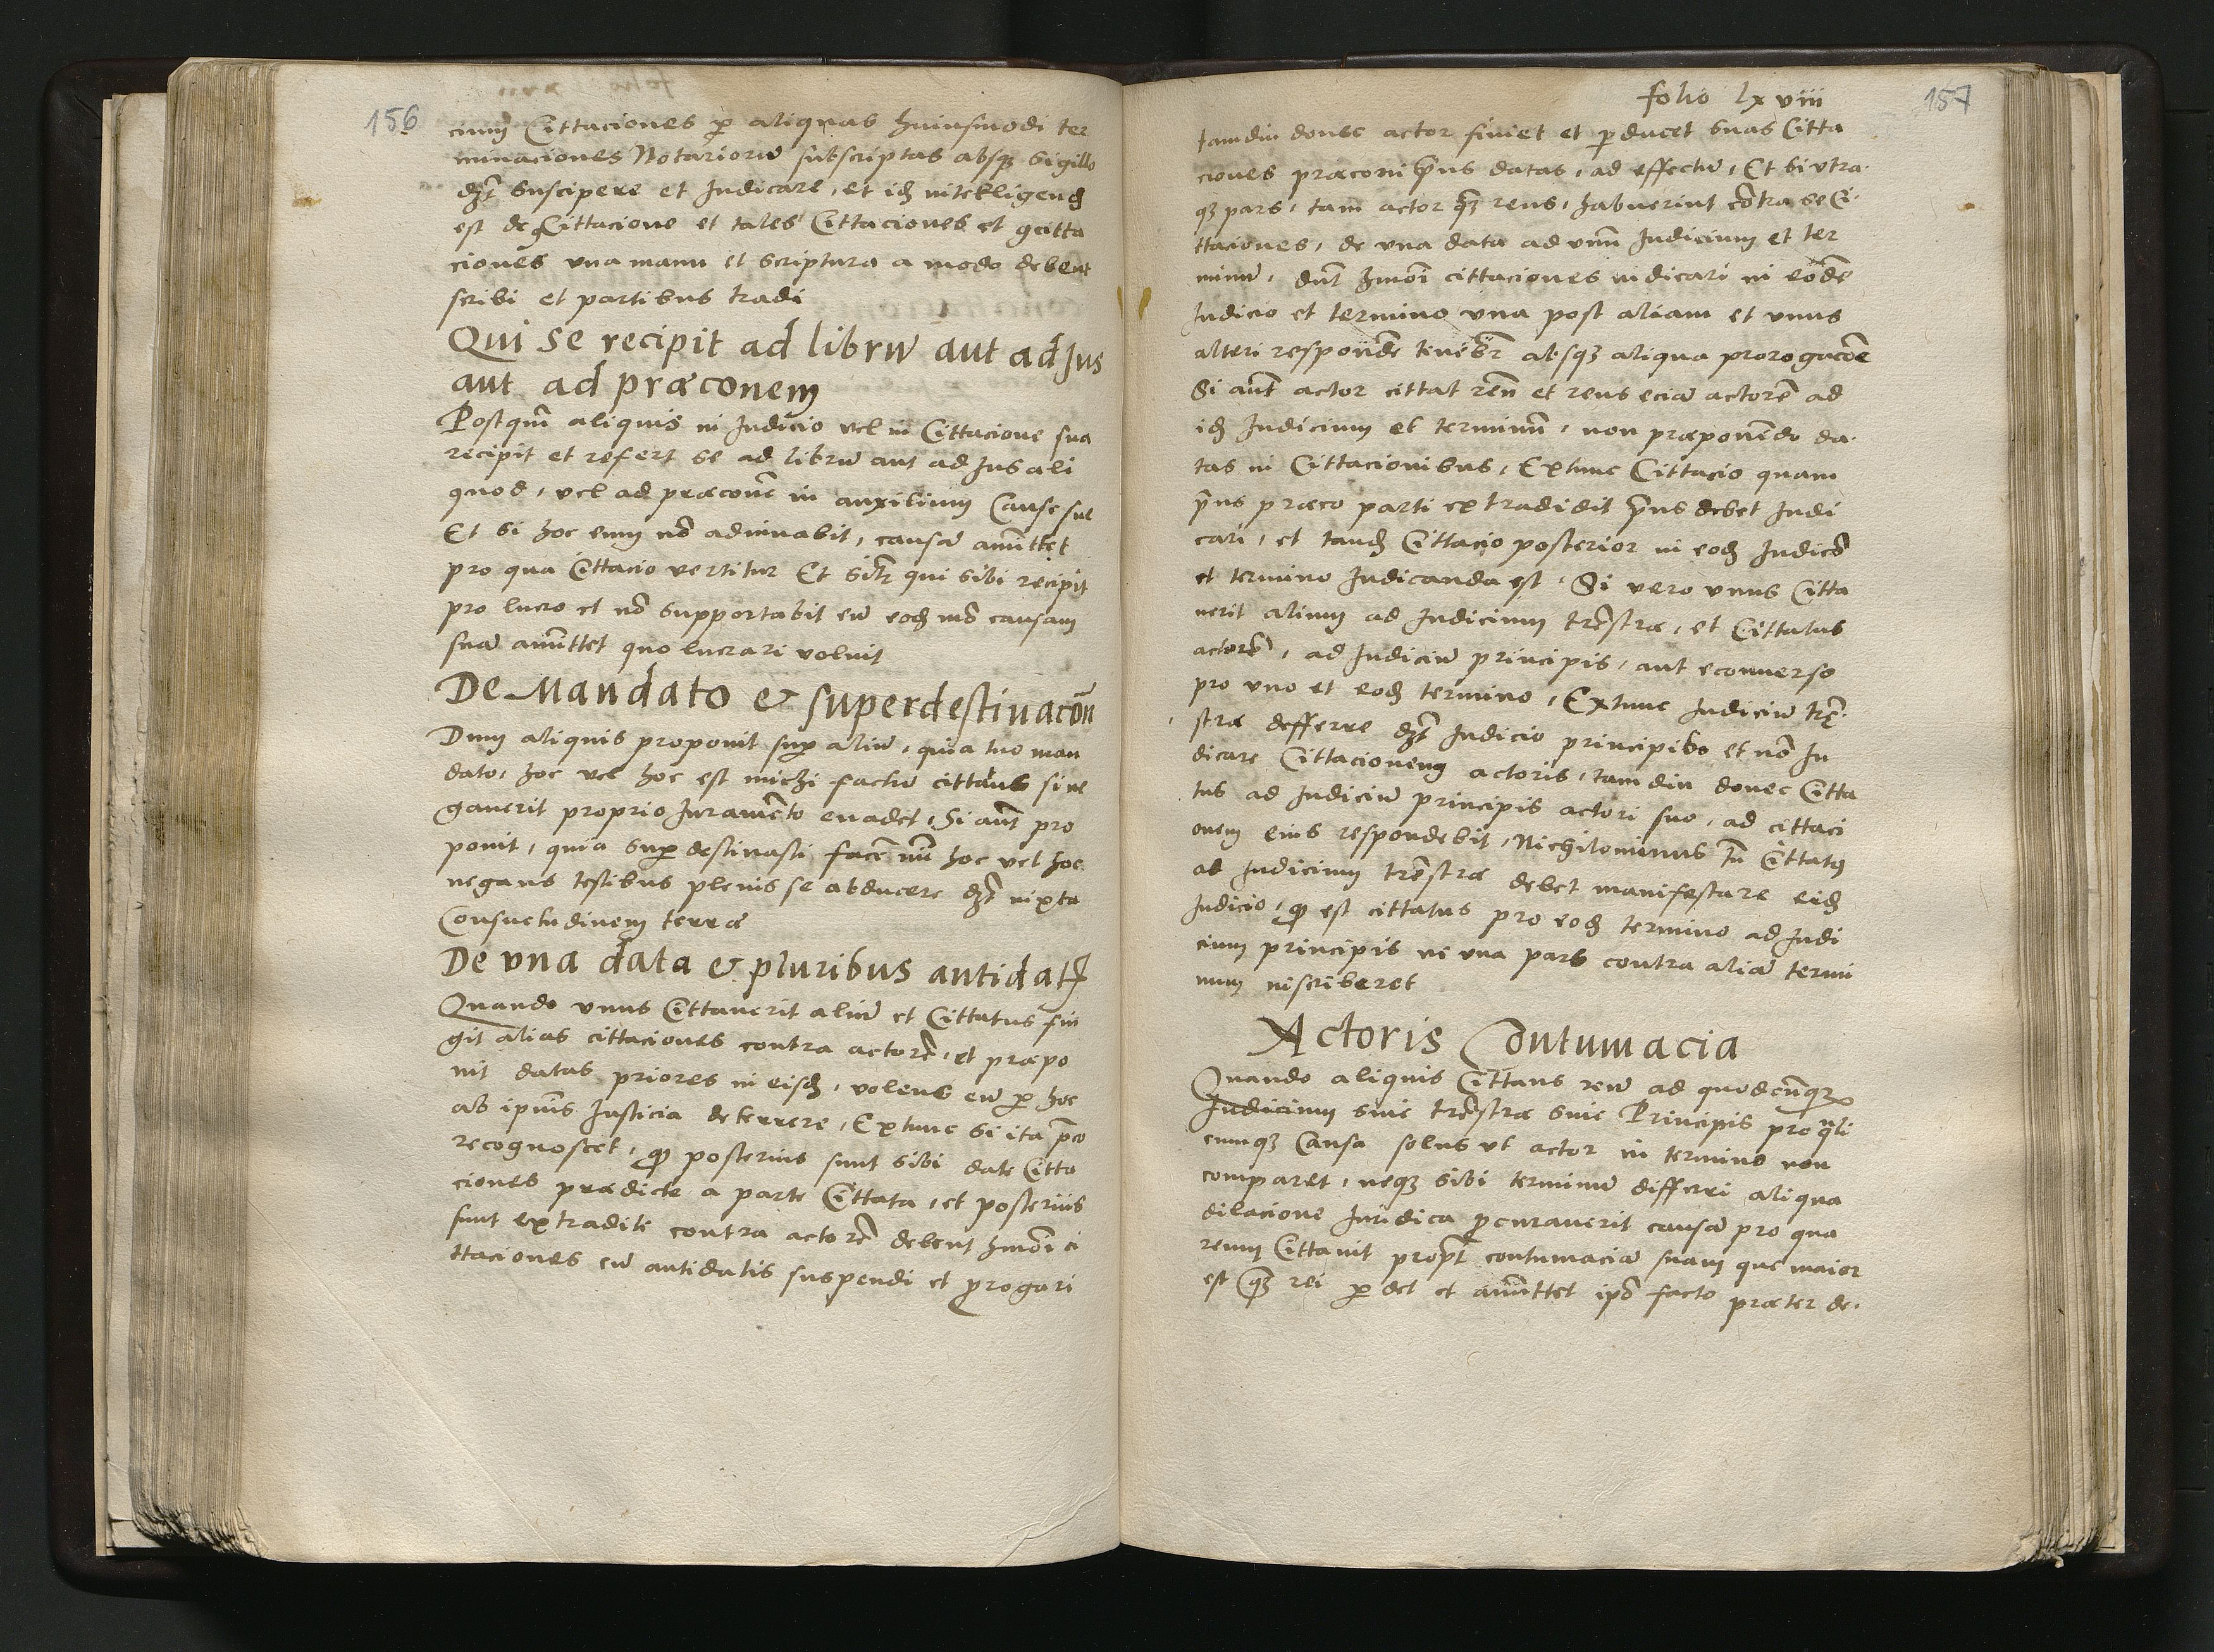 156
cium Cittaciones p aliquas huiusmodi ter
minaciones Notarioru subscriptas absq sigillo
dz suscipere et Judicare, et id intelligend
est de Cittacione et tales Cittaciones et gcitta
ciones vna manu et scriptura a modo debent
scribi et partibus tradi
Qui se recipit ad libru aut ad Jus
aut ad præconem
Postqm aliquis in Judicio vel in Cittacione sua
recipit et refert se ad libru aut ad Jus ali
quod, vel ad præcone in auxilium Cause sue
Et si hoc eum no adiuuabit, causa amittet
pro qua Cittacio vertitur Et silr qui sibi recipit
pro lucro et no supportabit eu eod mo causam
sua amittet quo lucrari voluit
De Mandato & superdestinacon
Dum aliquis proponit sup aliu, quia tuo man
dato, hoc vel hoc est michi factu cittatus si ne
gauerit proprio Juramento euadet, Si aut pro
ponit, quia sup destinasti, hoc vel hoc
negans testibus plenis se abducere dz iuxta
Consuetudinem terræ
De vna data & pluribus antidat
Quando vnus Cittauerit aliu et Cittatus fin
git alias cittaciones contra actore, et præpo
nit datas priores in eisd, volens eu p hoc
ab ipius Justicia deterrere, Extunc si ita pco
recognoscet, q posterius sunt sibi date Citta
ciones prædicte a parte Cittata, et posterius
sunt extraditi contra actore debent hmoi ci
ttaciones cu antidatis suspendi et prrogari
folio lxviii
157
tamdiu donec actor finiet et pducet suas Citta
ciones præconi prius datas, ad effectu, Et si vtra
q pars, tam actor qz reus, habuerint contra se Ci
ttaciones, de vna data ad vnu Judicium et ter
minu, dnt hmoi cittaciones iudicari in eode
Judicio et termino vna post aliam et vnus
alteri responde tenebr absq aliqua prorogacoe
Si aut actor cittat reu et reus ecia actore ad
id Judicium et terminu, non præponendo da
tas in Cittacionibus, Extunc Cittacio quam
prius præco parti extradidit prius debet Judi
cari, et tand Cittacio posterior in eod Judico
et termino Judicanda est, Si vero vnus Citta
uerit alium ad Judicium trestræ, et Cittatus
actore, ad Judiciu principis, aut econuerso
pro vno et eod termino, Extunc Judiciu tre
stræ defferre dz Judicio principis et no Ju
dicare Cittacionem actoris, tam diu donec Citta
tus ad Judiciu principis actori suo, ad cittaci
onem eius respondebit, Nichilominus tn Cittatus
ad Judicium trestræ debet manifestare eid
Judicio, q est cittatus pro eod termino ad Judi
cium principis ne vna pars contra alia termi
num inscriberet
Actoris Contumacia
Quando aliquis Cittans reu ad quodcunq
Judicium siue trestræ siue Principis pro qali
cumq Causa solus vt actor in termino non
comparet, neq sibi terminu differri aliqua
dilacione Juridica pcurauerit causa pro qua
reum Cittauit propt contumacia suam que maior
est qz rei pdet et amittet ipo facto præter de